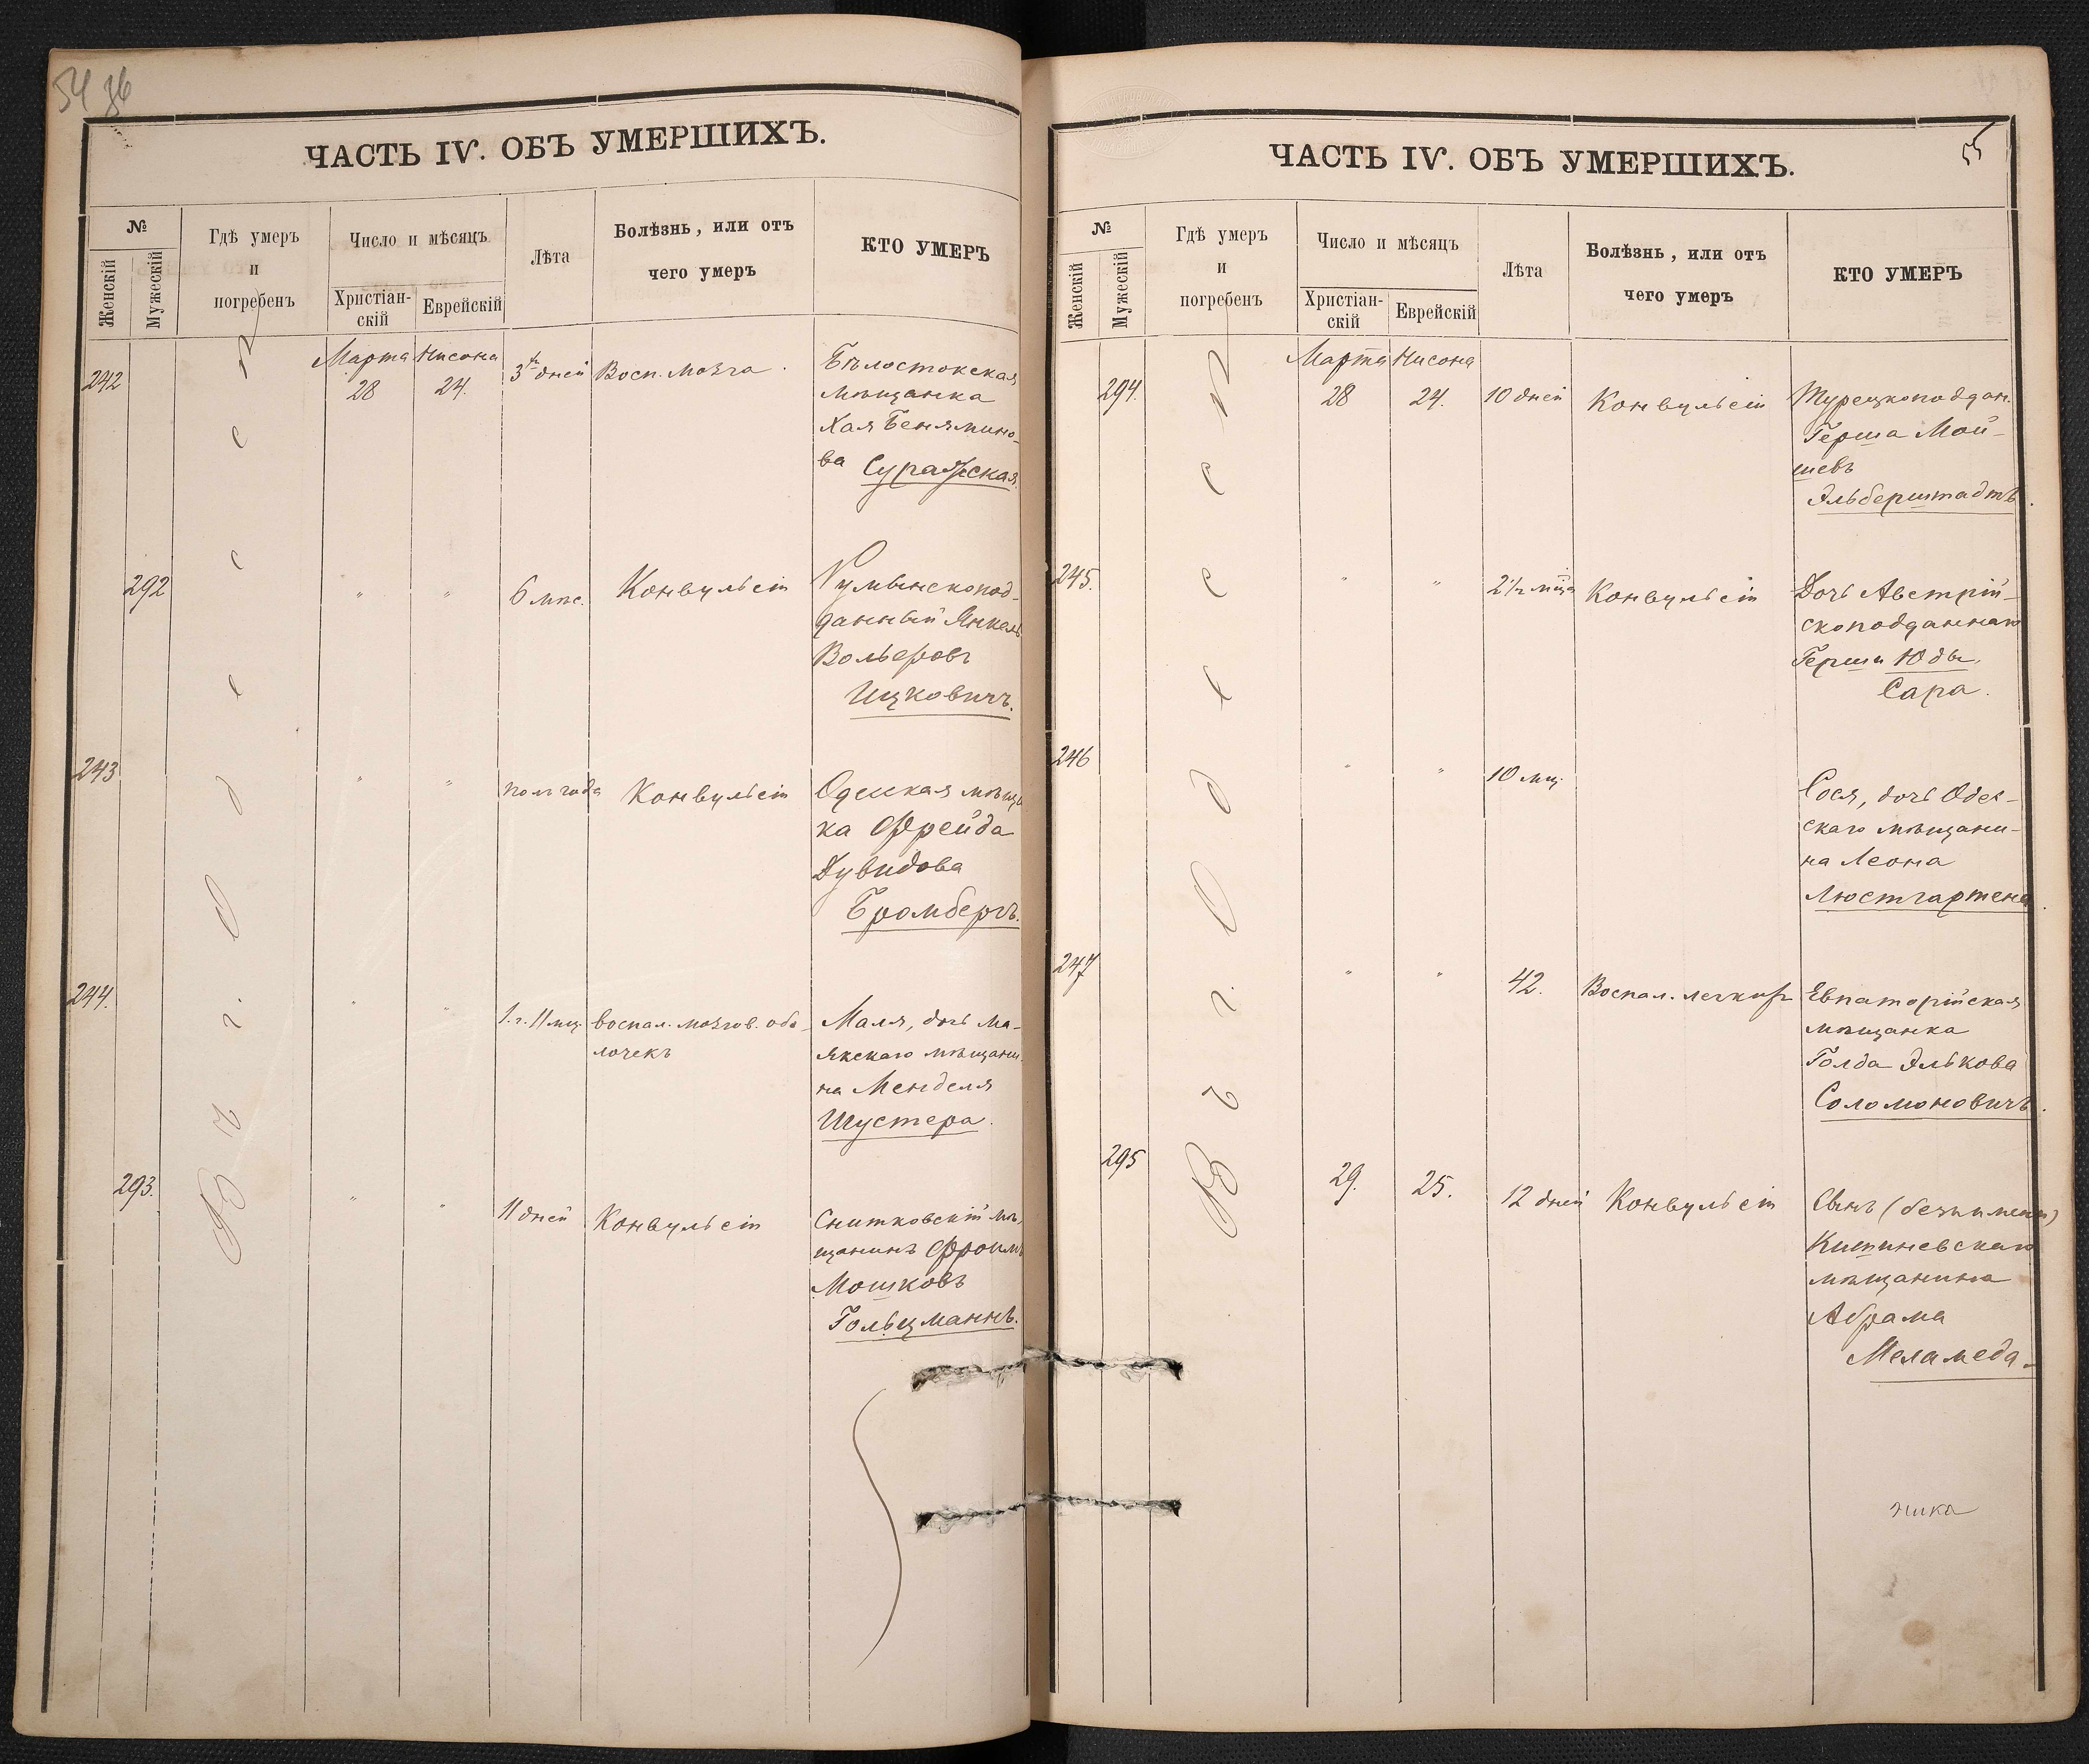 54 36
ЧАСТЬ IV. ОБЪ УМЕРШИХЪ.
№
Женскій
Мужескій
Гдѣ умеръ
и
погребенъ
Число и мѣсяцъ
Христіан-
скій
Еврейскій
Лѣта
Болѣзнь, или отъ
чего умеръ
КТО УМЕРЪ
Въ г. Одессѣ
242
Марта Нисона
28 24.
3хъ дней
Восп. мозга.
Бѣлостокская
мѣщанка
Хая Бенямино-
ва Суражская.
292
" "
6 мѣс.
Конвульсіи
Румынскопод-
данный Янкель
Вольфовъ
Ицковичъ.
243
" "
полгода
Конвульсіи
Одесская мѣщ
ка Фрейда
Дувидова
Бромбергъ.
244.
" "
1. г. 11 мц.
воспал. мозгов. обо-
лочекъ
Маля, дочь Ма-
якскаго мѣщани-
на Менделя
Шустера.
293.
" "
11 дней
Конвульсіи
Снитковскій мѣ-
щанинъ Фроимъ
Мошковъ
Гольцманнъ.
ЧАСТЬ IV. ОБЪ УМЕРШИХЪ.
55
№
Женскій
Мужескій
Гдѣ умеръ
и
погребенъ
Число и мѣсяцъ
Христіан-
скій
Еврейскій
Лѣта
Болѣзнь, или отъ
чего умеръ
КТО УМЕРЪ
Въ г. Одессѣ
294.
Марта Нисона
28 24.
10 дней
Конвульсіи
Турецкоподдан.
Герша Мой-
шевъ
Эльберштадтъ.
245.
" "
2½ мца
Конвульсіи
Дочь Австрій-
скоподданнаго
Герша Юды,
Сара.
246
" "
10 мц.
Сося, дочь Одес-
скаго мѣщани-
на Леона
Люстгартена.
247
" "
42.
Воспал. легкихъ
Евпаторійская
мѣщанка
Голда Элькова
Соломоновичъ.
295
29. 25.
12 дней
Конвульсіи
Сынъ (безъимени)
Кишиневскаго
мѣщанина
Абрама
Меламеда.
ника